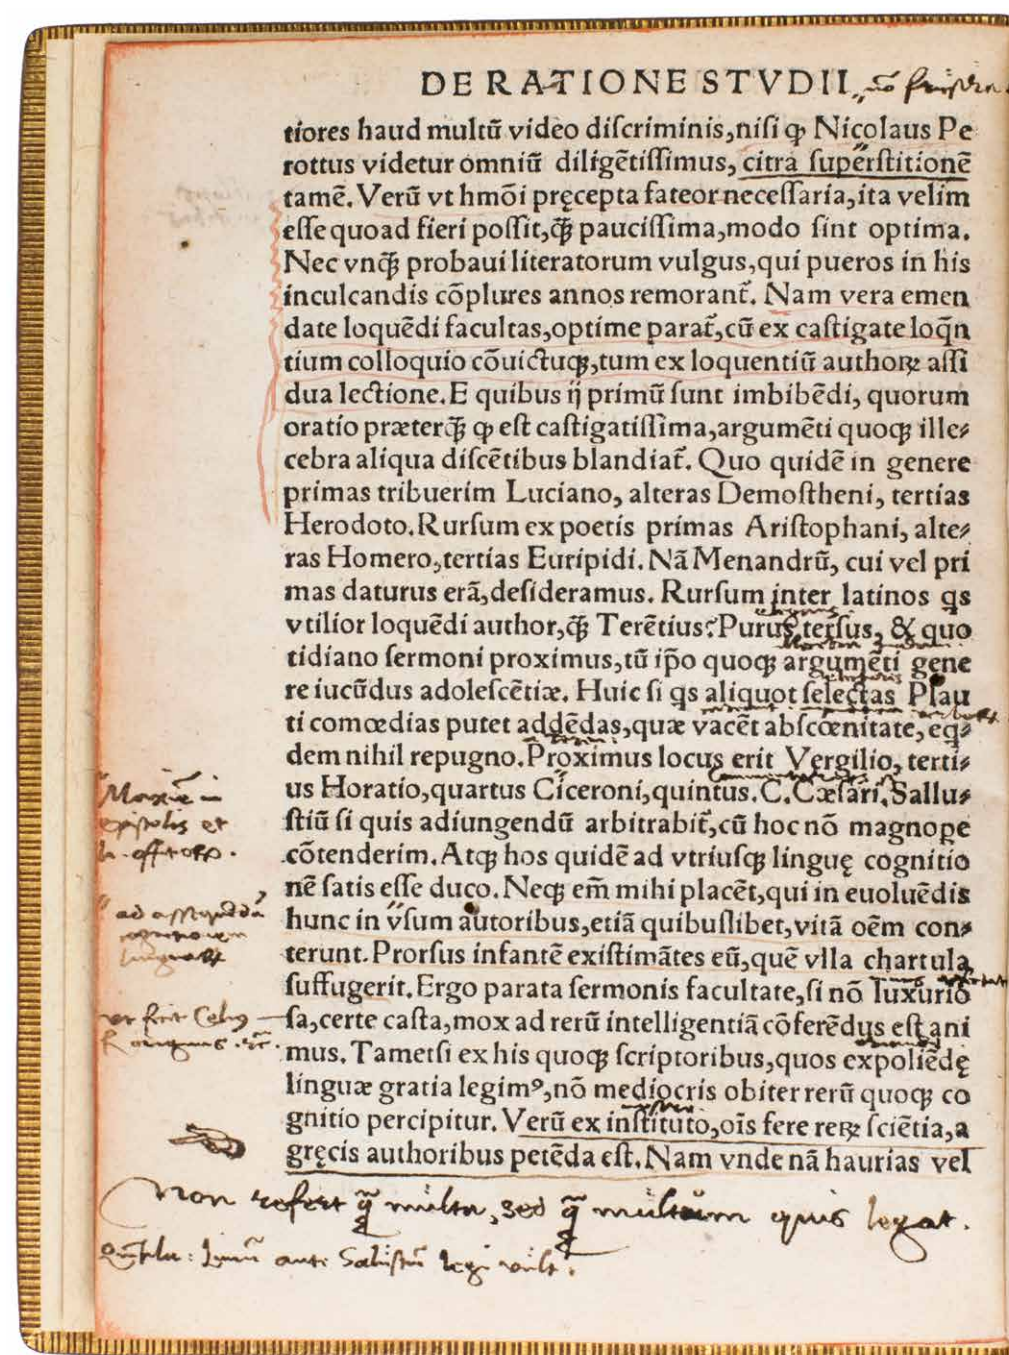 DE RATIONE STVDII
tiores haud multũ video diſcriminis,niſi ꝙ Nicolaus Pe
rottus videtur omniũ diligẽtiſſimus, citra ſuperſtitionẽ
tamẽ. Verũ vt hmõi pręcepta fateor neceſſaria,ita velim
eſſe quoad fieri poſſit,q̃ꝫ pauciſſima,modo ſint optima.
Nec vnq̃ꝫ probaui literatorum vulgus,qui pueros in his
inculcandis cõplures annos remorant᷑. Nam vera emen
date loquẽdi facultas,optime parat᷑, cũ ex caſtigate loq̃n
tium colloquio cõuictuqꝫ,tum ex loquentiũ authoꝝ aſſi
dua lectione. E quibus ij primũ ſunt imbibẽdi, quorum
oratio præterq̃ꝫ ꝙ eſt caſtigatiſſima,argumẽti quoqꝫ ille⸗
cebra aliqua diſcẽtibus blandiat᷑. Quo quidẽ in genere
primas tribuerim Luciano, alteras Demoſtheni, tertias
Herodoto. Rurſum ex poetis primas Ariſtophani, alte⸗
ras Homero, tertias Euripidi. Nã Menandrũ, cui vel pri
mas daturus erã,deſideramus. Rurſum inter latinos qs
vtilior loquẽdi author,q̃ꝫ Terẽtius? Purus, terſus, & quo
tidiano ſermoni proximus,tũ ip̃o quoqꝫ argumẽti gene
re iucũdus adoleſcẽtiæ. Huic ſi qs aliquot ſelectas Plau
ti comœdias putet addẽdas,quæ vacẽt abſcœnitate, eq⸗
dem nihil repugno. Proximus locus erit Vergilio, terti⸗
us Horatio,quartus Ciceroni,quintus. C. Cæſari. Sallu⸗
ſtiũ ſi quis adiungendũ arbitrabit᷑,cũ hoc nõ magnope
cõtenderim. Atqꝫ hos quidẽ ad vtriuſqꝫ linguę cognitio
Maxime in
epistolis et
li. officiorum.
nẽ ſatis eſſe duco. Neqꝫ em̃ mihi placẽt,qui in euoluẽdis
hunc in vſum autoribus,etiã quibuſlibet,vitã oẽm con⸗
terunt. Prorſus infantẽ exiſtimãtes eũ,quẽ vlla chartula
ſuffugerit. Ergo parata ſermonis facultate,ſi nõ luxurio
ſa,certe caſta,mox ad rerũ intelligentiã cõferẽdus eſt ani
mus. Tametſi ex his quoqꝫ ſcriptoribus,quos expoliẽdę
linguæ gratia legimꝰ,nõ mediocris obiter rerũ quoqꝫ co
gnitio percipitur. Verũ ex inſtituto,oĩs fere reꝝ ſciẽtia, a
gręcis authoribus petẽda eſt. Nam vnde nã haurias vel
Non refert q̃ multa, sed q̃ multum quis legat.
ante Salustiũ legi vult.